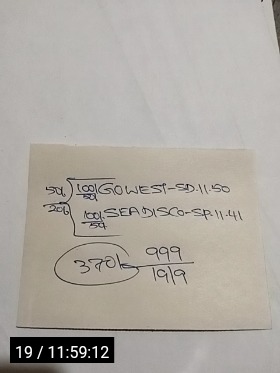 50/20 100/50 GOWEST-SD.11.50
100/50 SEADISCO-SP.11.41
370/- 999/1919
19 / 11:59:12